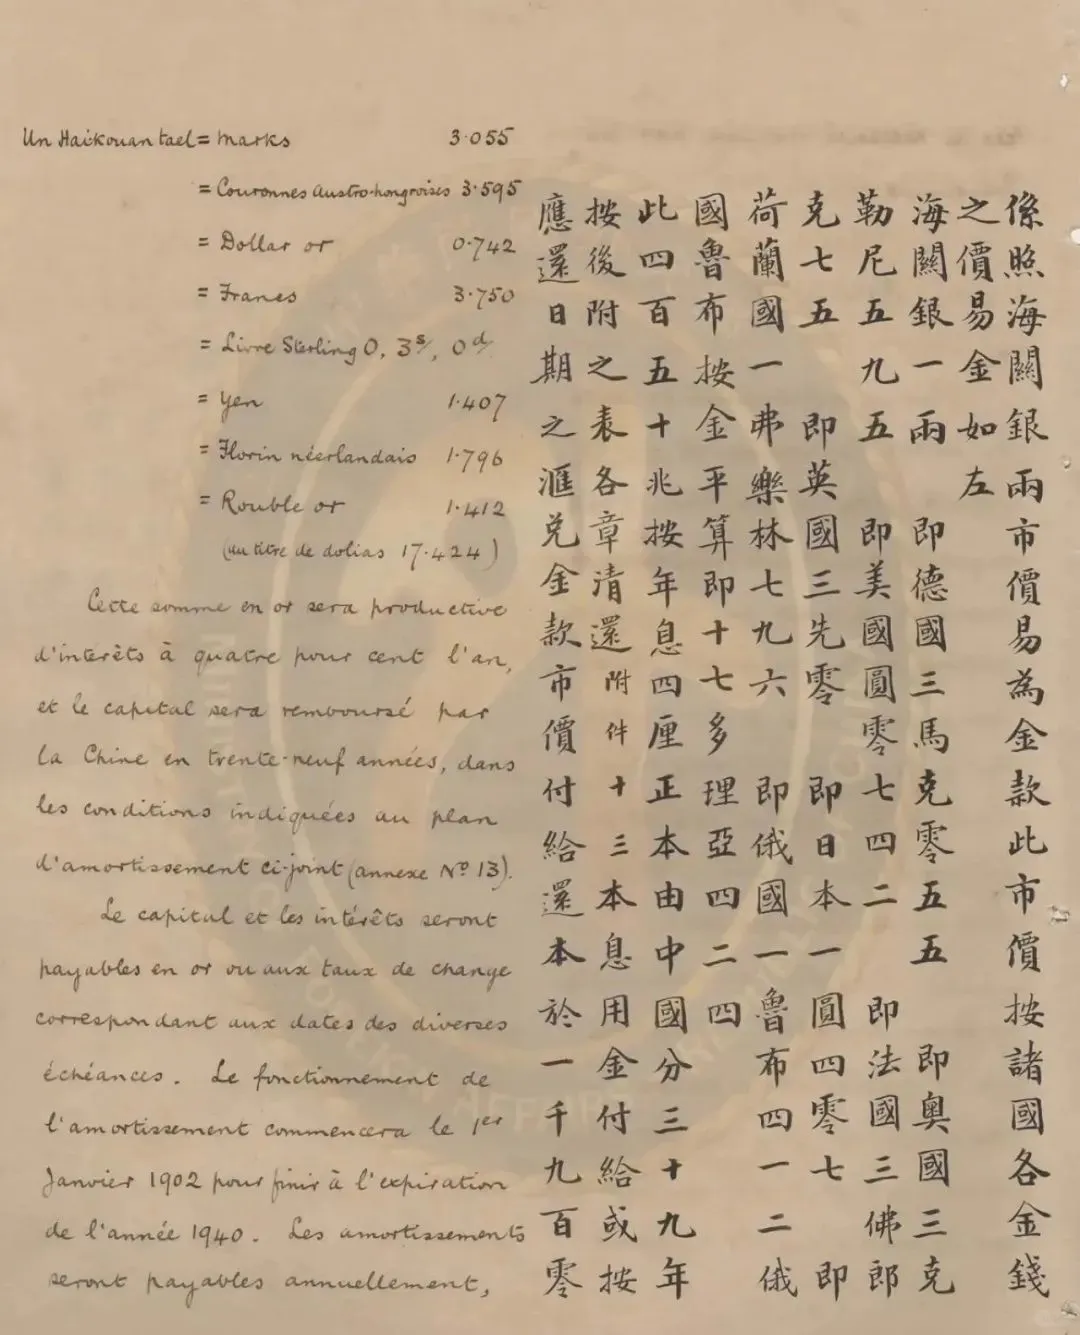 Un Haikouan tael = Marks 3.055
= Couronnes Austro-hongroises 3.595
= Dollar or 0.742
= Francs 3.750
= Livre Sterling 0, 3s/, 0d/
= Yen 1.407
= Florin néerlandais 1.796
= Rouble or 1.412
(au titre de dolias 17.424)
Cette somme en or sera productive
d'intérêts à quatre pour cent l'an,
et le capital sera remboursé par
la Chine en trente-neuf années, dans
les conditions indiquées au plan
d'amortissement ci-joint (annexe No 13).
Le capital et les intérêts seront
payables en or ou aux taux de change
correspondant aux dates des diverses
échéances. Le fonctionnement de
l'amortissement commencera le 1er
Janvier 1902 pour finir à l'expiration
de l'année 1940. Les amortissements
seront payables annuellement,
係照海關銀兩市價易為金款此市價按諸國各金錢
之價易金如左
海關銀一兩 即德國三馬克零五五 即奧國三克
勒尼五九五 即美國圓零七四二 即法國三佛郎
克七五 即英國三先零 即日本一圓四零七 即
荷蘭國一弗樂林七九六 即俄國一魯布四一二俄
國魯布按金平算即十七多理亞四二四
此四百五十兆按年息四厘正本由中國分三十九年
按後附之表各章清還附件十三本息用金付給或按
應還日期之滙兌金款市價付給還本於一千九百零